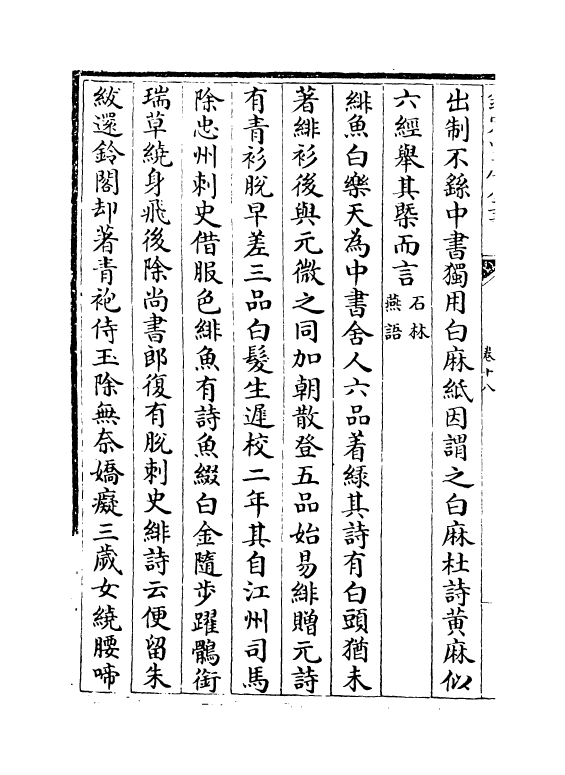 卷十八
出制不繇中書獨用白麻紙因謂之白麻杜詩黃麻似
六經舉其槩而言石林燕語
緋魚白樂天為中書舍人六品着緑其詩有白頭猶未
著緋衫後與元微之同加朝散登五品始易緋贈元詩
有青衫脫早差三品白髮生遲校二年其自江州司馬
除忠州刺史借服色緋魚有詩魚綴白金隨步躍鶻銜
瑞草繞身飛後除尚書郎復有脫刺史緋詩云便留朱
紱還鈴閣却著青袍侍玉除無奈嬌癡三歲女繞腰啼